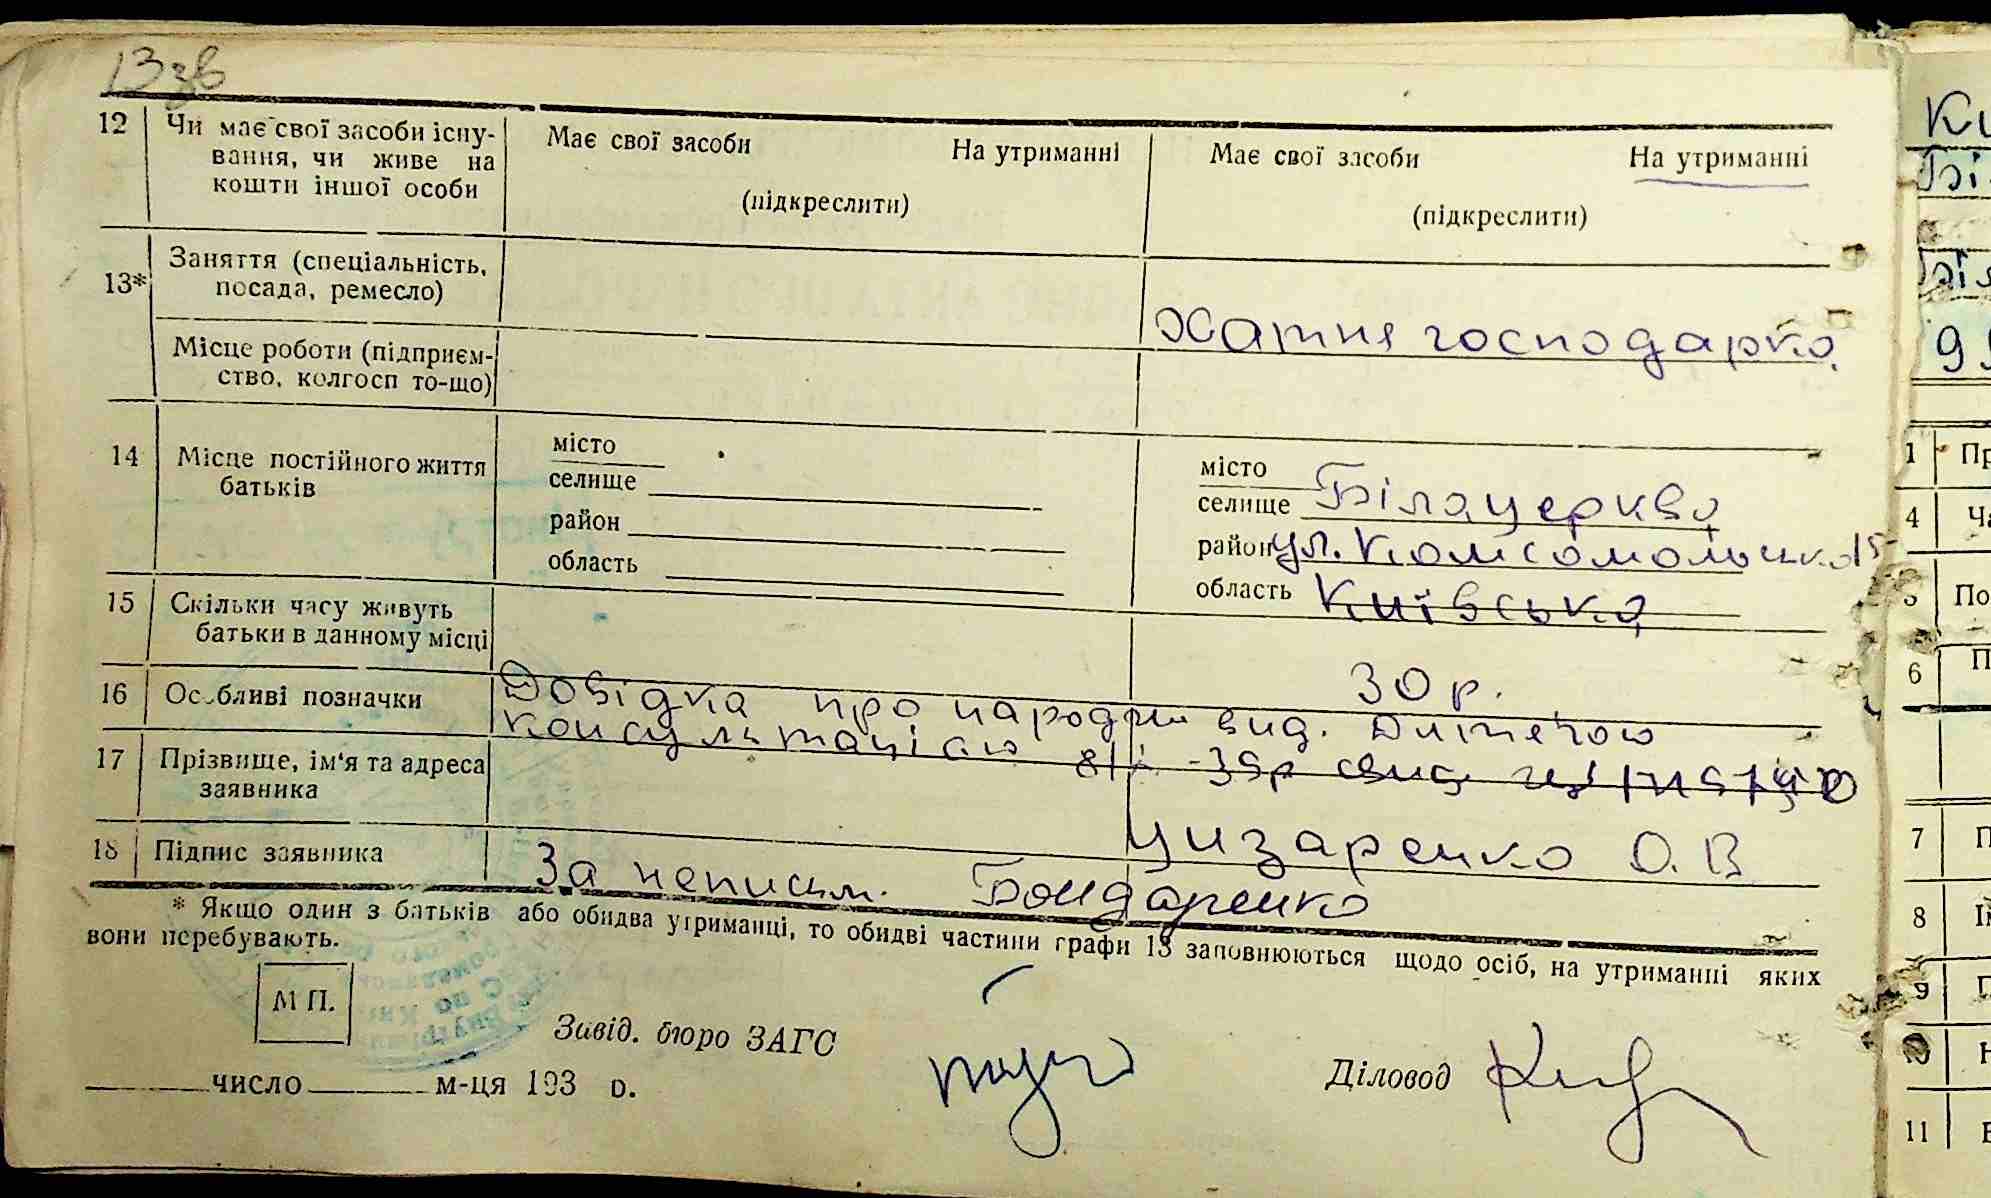 13 зв
12 Чи має свої засоби існу- Має свої засоби На утриманні Має свої засоби На утриманні
вання, чи живе на
кошти іншої особи (підкреслити) (підкреслити)
13* Заняття (спеціальність,
посада, ремесло) Хатня господарка.
Місце роботи (підприєм-
ство, колгосп то-що)
14 Місце постійного життя
батьків
місто
селище
район
область
місто
селище Біла церква
район ул. Комсомольська 15
область Київська
15 Скільки часу живуть
батьки в данному місці 30 р.
16 Особливі позначки Довідка про народж вид. Дитячою
консультацією
17 Прізвище, ім'я та адреса
заявника О. В
18 Підпис заявника За неписьм. Бондаренко
* Якщо один з батьків або обидва утриманці, то обидві частини графи 13 заповнюються щодо осіб, на утриманні яких
вони перебувають.
М П.
Завід. бюро ЗАГС
Діловод
число м-ця 193 р.
Ки
Біл
Біл
1 Пр
4 Ча
5 По
6 П
7 П
8 Ім
9 П
10 Н
11